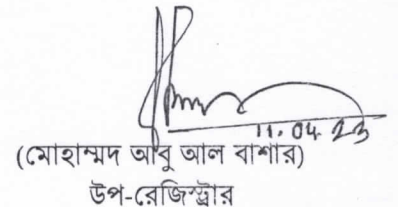 11.04.23
(মোহাম্মদ আবু আল বাশার)
উপ-রেজিস্ট্রার